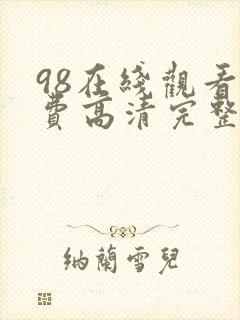 98在綫觀看
費高清完整
納蘭雪兒